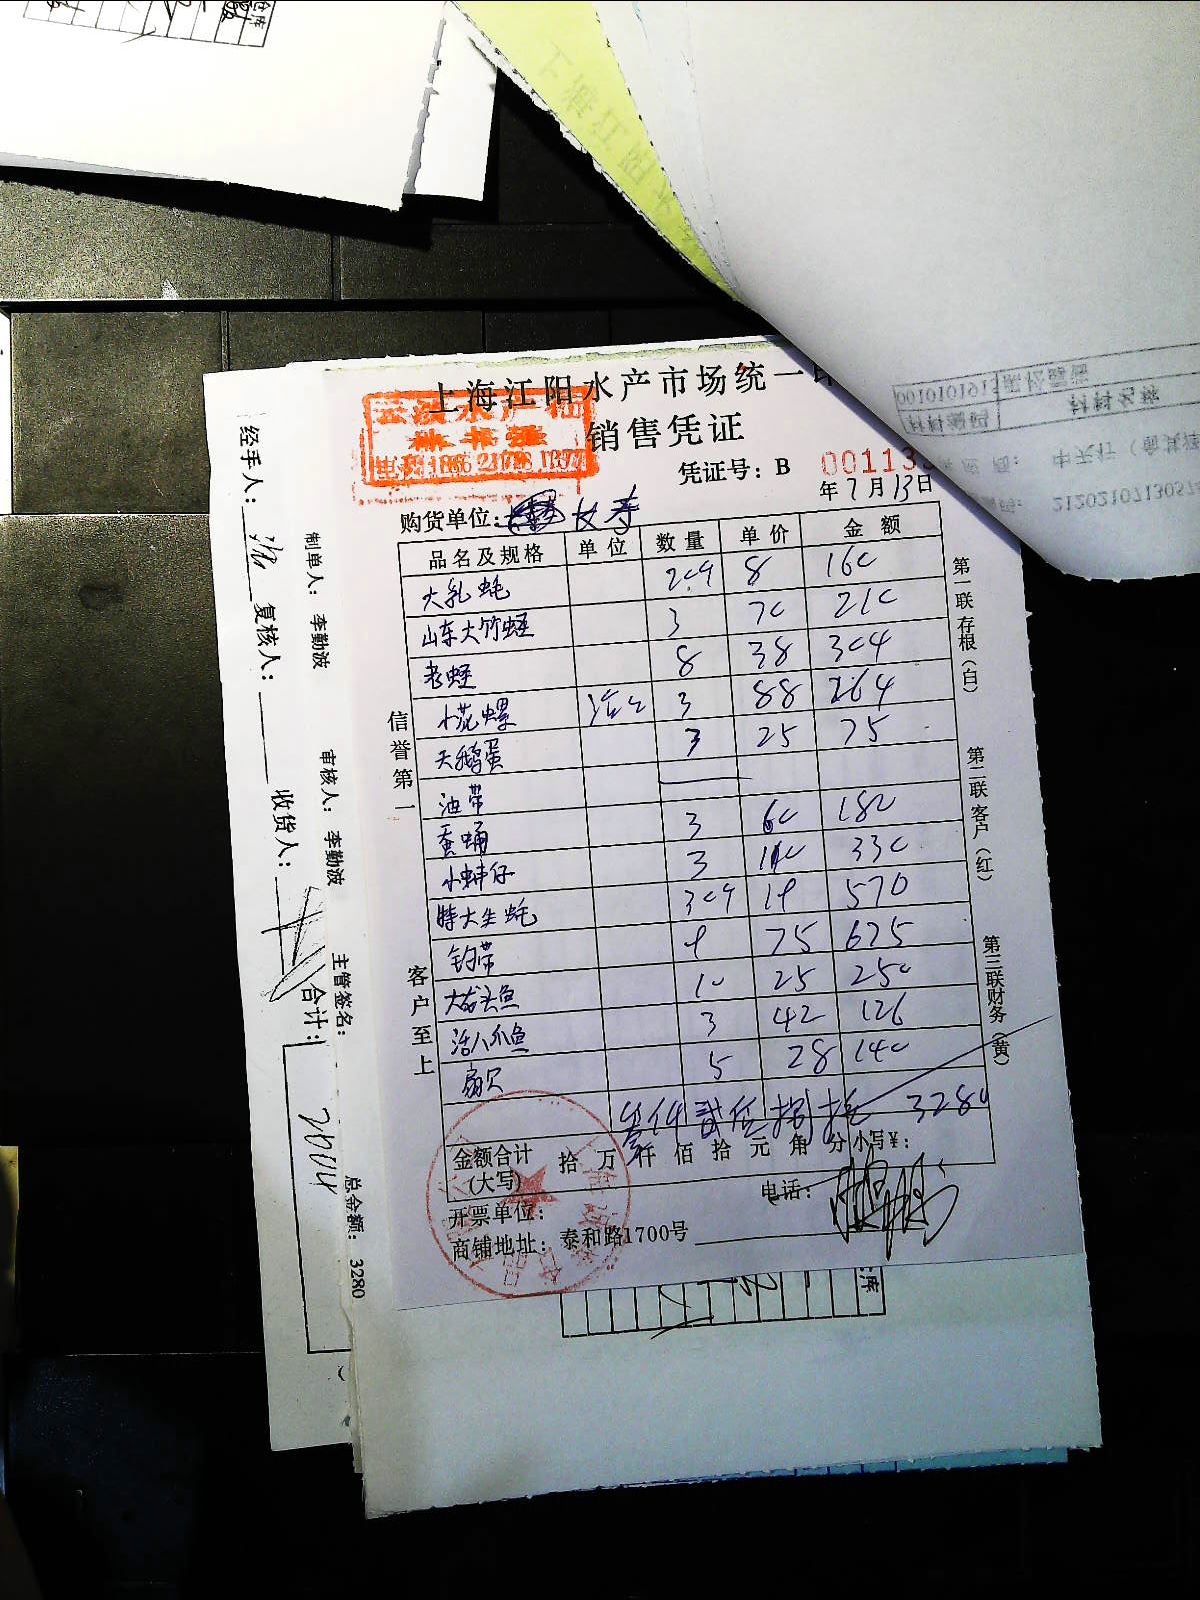 上海江阳水产市场统一
销售凭证
凭证号：B 00113
年7月13日
购货单位：
品名及规格 单位 数量 单价 金额
大乳蚝 20个 8 160
山东大竹蛏 3 70 210
老蛏 8 38 304
小花螺 3 88 264
天鹅蛋 3 25 75
油带
蚕蛹 3 60 180
小蚌仔 3 110 330
特大生蚝 30个 19 570
钓带 9 75 675
大龙头鱼 10 25 250
活八爪鱼 3 42 126
扇贝 5 28 140
叁仟贰佰捌拾 3280
金额合计 拾 万 仟 佰 拾 元 角 分 小写¥：
(大写)
开票单位：
电话：
商铺地址：泰和路1700号
信誉第一
客户至上
第一联存根（白）
第二联客户（红）
第三联财务（黄）
制单人：李勤波
审核人：李勤波
主管签名：
总金额：3280
经手人：
复核人：
收货人：
合计：
材料编码 材料名称